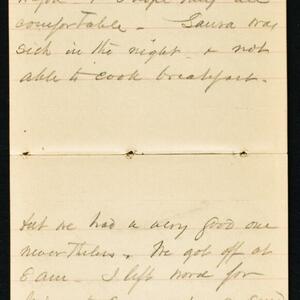 comfortable – Laura was
sick in the night & not
able to cook breakfast.
but we had a very good one
nevertheless. We got off at
6 am – I left word for